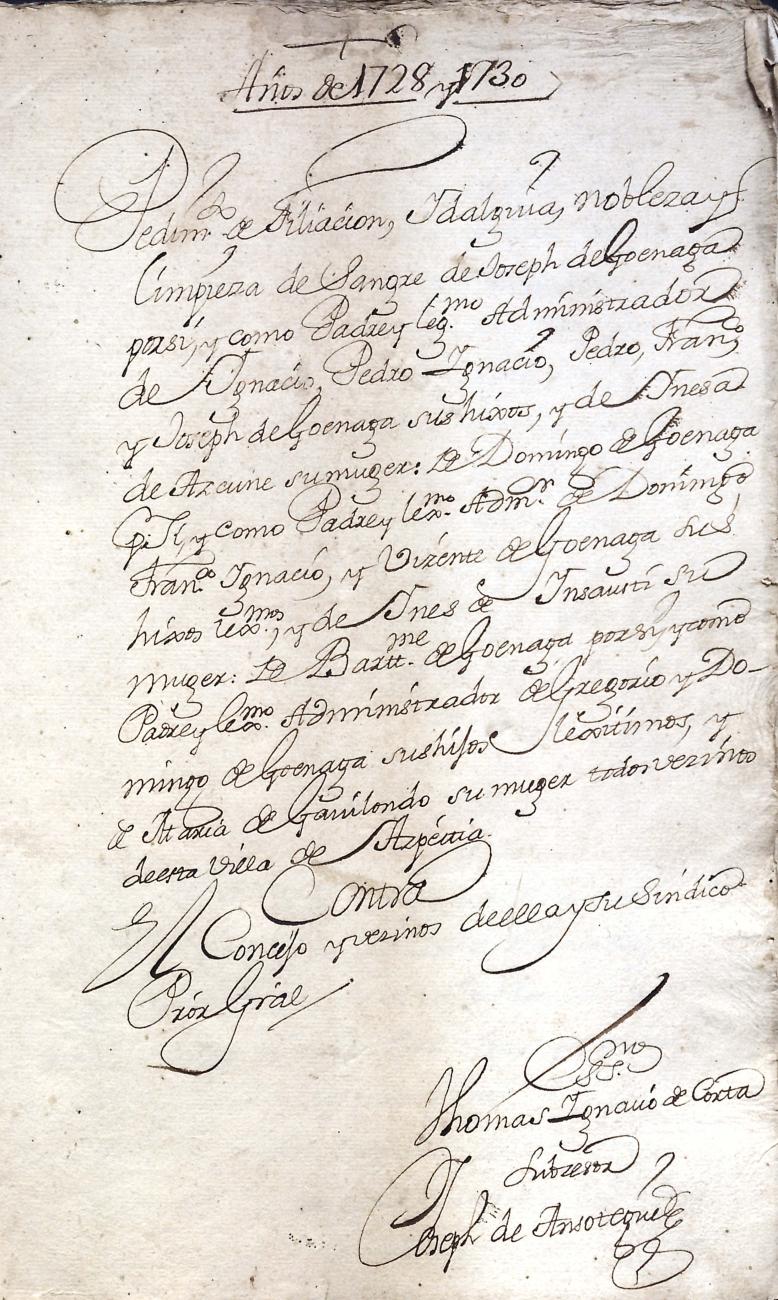 Años de 1728 y 1730
Pedimto de Filiacion, Ydalguia, nobleza y
limpieza de Sangre de Joseph de Goenaga
por si, y como Padre y legmo Administrador
de Ygnacio, Pedro Ygnacio, Pedro, Franco
y Joseph de Goenaga sus hixos, y de Ynesa
de Azcune su muger: De Domingo de Goenaga
p. si, y como Padre y lexmo Admor de Domingo
Franco Ygnacio, y Vizente de Goenaga sus
hixos lexmos, y de Ynes de Insausti su
muger: De Barttme de Goenaga por si, y como
Padre y lexmo Administrador de Gregorio y Do-
mingo de Goenaga sus hijos lexitimos, y
de Maria de Gavilondo su muger todos vezinos
de esta Villa de Azpeitia.
Contra
El Concejo y vezinos de ella y su Sindico
Pror Gral
SSno
Thomas Ygnacio de Corta
Subzesor
Joseph de Ansotegui